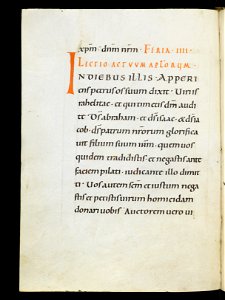 xpm̄ dnm̄ nrm̄ · FERIA · IIII ·
LECTIO ACTUUM APLORUM ·
IN DIEBUS ILLIS · APPERI
ens petrus os suum dixit · Uiri is
rahelitae · et qui timetis dm̄ audi
te · Ds abraham · et ds isaac · et ds ia
cob · ds patrum nrorum glorifica
uit filium suum ihm̄ · quem uos
quidem tradidistis et negastis ante
faciem pilati · iudicante illo dimit
ti · Uos autem scm̄ et iustum nega
stis et petistis uirum homicidam
donari uobis · Auctorem uero ui